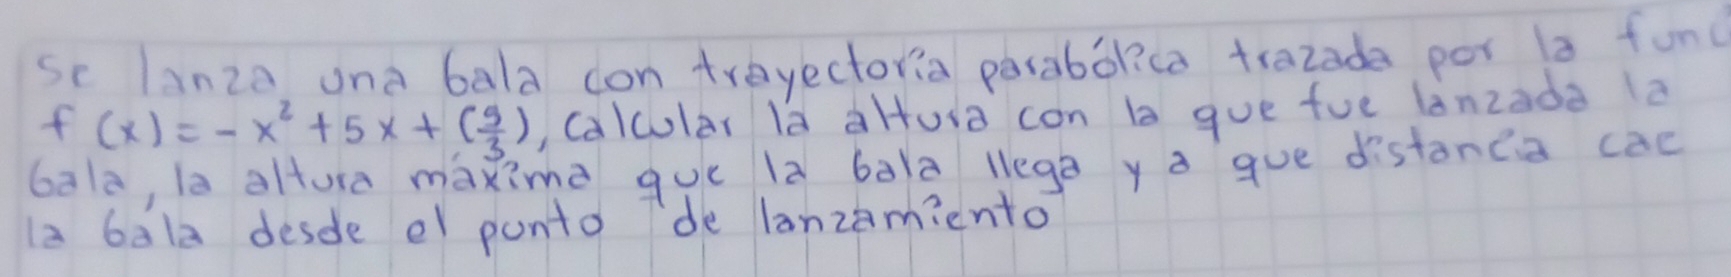 Se lanza una bala con trayectoria parabólica trazada por la func
f(x) = -x² + 5x + (9/3), calcular la altura con la que fue lanzada la
bala, la altura máxima que la bala llega y a que distancia cae
la bala desde el punto de lanzamiento